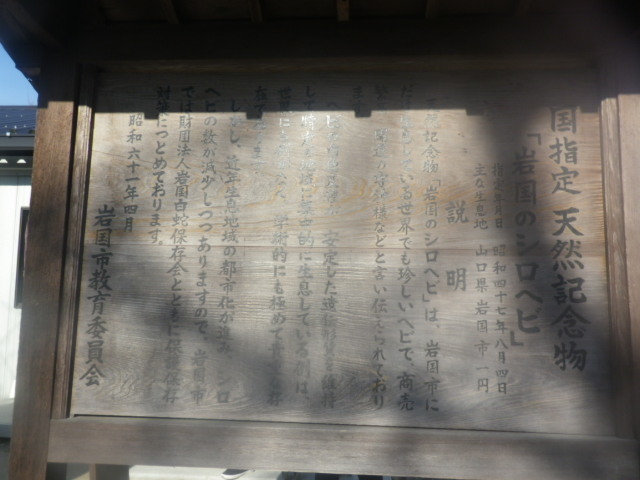 国指定 天然記念物
「岩国のシロヘビ」
指定年月日 昭和四十七年八月四日
主な生息地 山口県岩国市一円
説明
天然記念物「岩国のシロヘビ」は、岩国市に
生息している世界でも珍しいヘビで、商売
などと言い伝えられており
ます。
安定した遺伝 維持
して 地域に集中的に生息している例は、
世界に 学術的にも極めて貴重な存
在
しかし、近年生息地域の都市化が進み、シロ
ヘビの数が減少しつつありますので、岩国市
では財団法人岩国白蛇保存会とともに保護保存
対策につとめております。
昭和六十一年四月
岩国市教育委員会